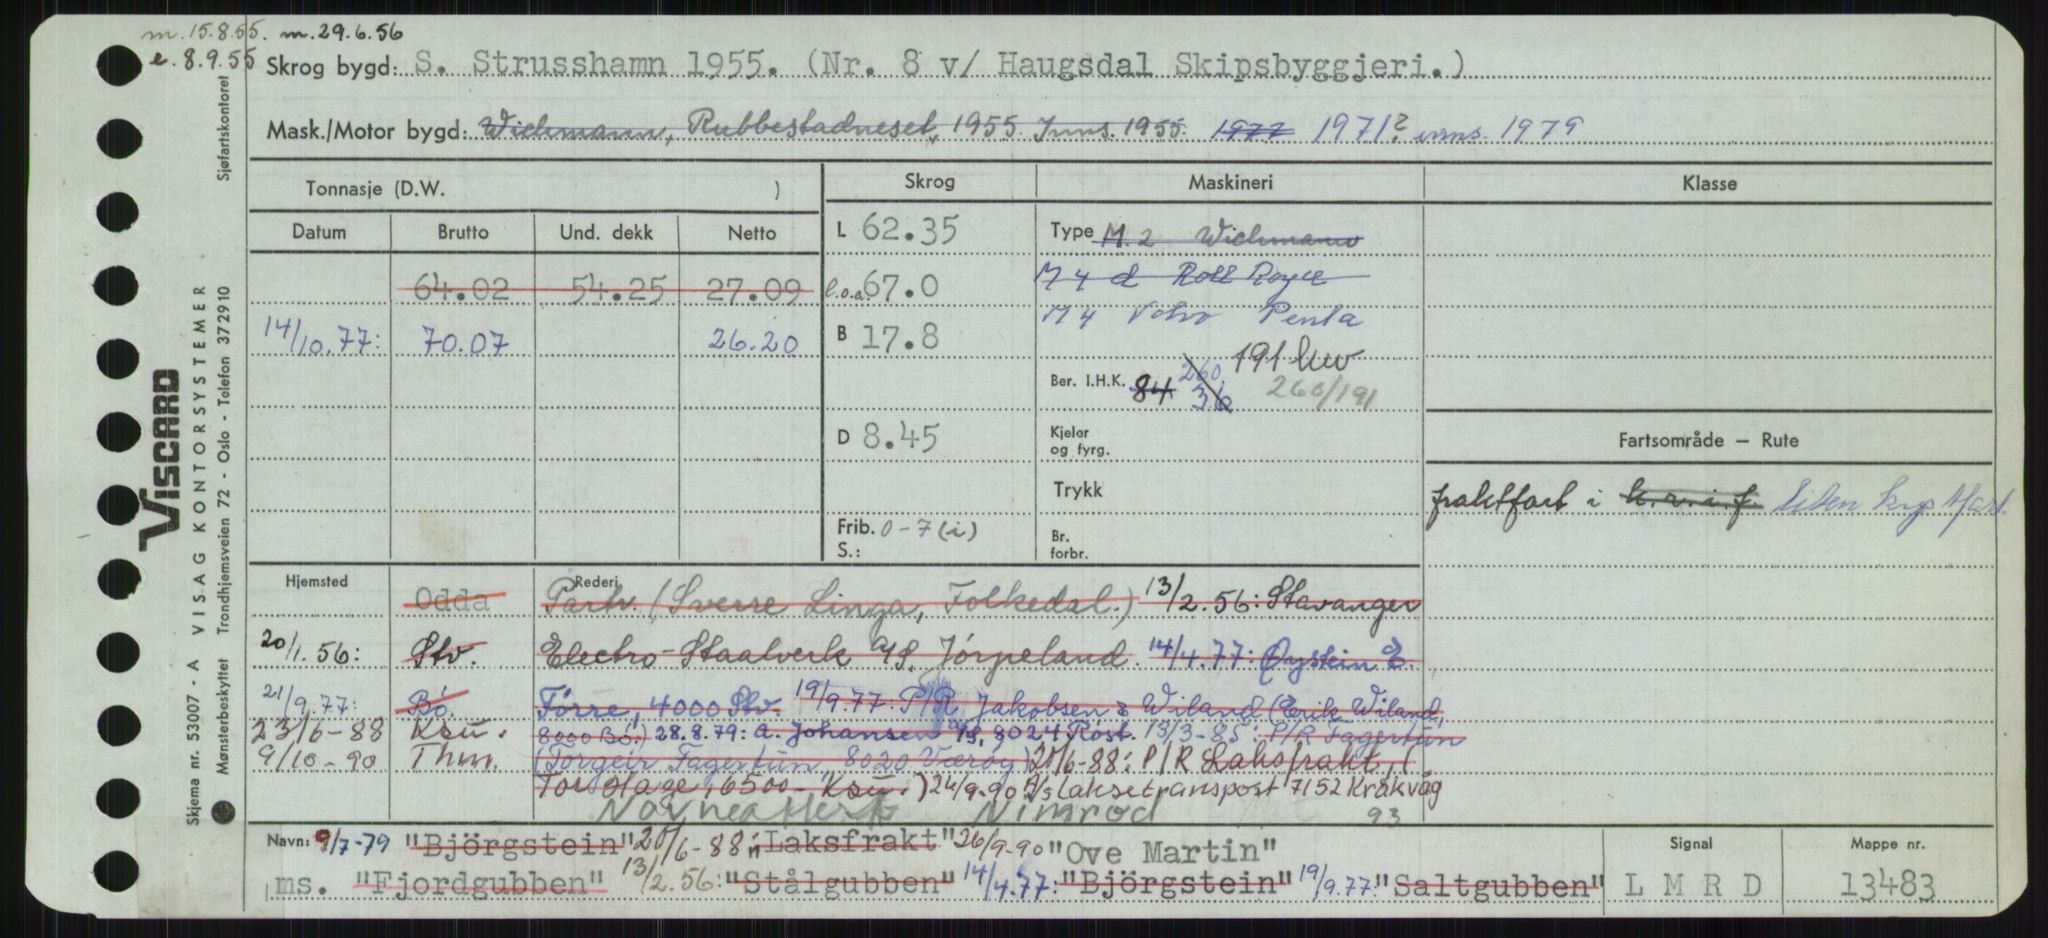 m. 15.8.55. m. 29.6.56
e. 8.9.55
Skrog bygd: S. Strusshamn 1955. (Nr. 8 v/ Haugsdal Skipsbyggjeri.)
Mask./Motor bygd: Wichmann, Rubbestadneset, 1955 Inns. 1955. 1977 1971? inns. 1979
Tonnasje (D.W. ) Skrog Maskineri Klasse
Datum Brutto Und. dekk Netto
64.02 54.25 27.09
14/10.77: 70.07 26.20
L 62.35
l.o.a. 67.0
B 17.8
D 8.45
Frib. 0-7 (i)
S.:
Type M. 2 Wichmann
M 4 d Roll Royce
M 4 Volvo Penta
191 kw
Ber. I.H.K. 84 260 36 260/191
Kjeler
og fyrg.
Trykk
Br.
forbr.
Fartsområde – Rute
fraktfart i k.v.i.f. liten kystfart.
Hjemsted Rederi
Odda Partr. (Sverre Linga, Folkedal.) 13/2.56: Stavanger
20/1.56: Stv. Electro-Staalverk A/S, Jørpeland. 14/4.77: Øystein E.
21/9.77: Bó. Førre, 4000 Stv. 19/9.77: P/R Jakobsen & Wiland (Erik Wiland,
23/6-88 Ksu. 8000 Bó.) 28.8.79: A. Johansen A/S, 8024 Röst. 13/3-85: P/R Fagertun
9/10-90 Thm. (Torgeir Fagertun, 8020 Værøy) 20/6-88: P/R Laksfrakt, (
Tor Hage, 6500 Ksu.) 24/9.90 I/S Laksetransport 7152 Kråkvåg
Navneattest Nimrod 93
Navn: 9/7-79 "Björgstein" 20/6-88 "Laksfrakt" 26/9-90 "Ove Martin"
ms. "Fjordgubben" 13/2.56: "Stålgubben" 14/4.77: "Björgstein" 19/9.77: "Saltgubben"
Signal
L M R D
Mappe nr.
13483
VISCARD
Skjema nr. 53007 - A VISAG KONTORSYSTEMER Sjøfartskontoret
Mønsterbeskyttet Trondhjemsveien 72 - Oslo - Telefon 37 29 10